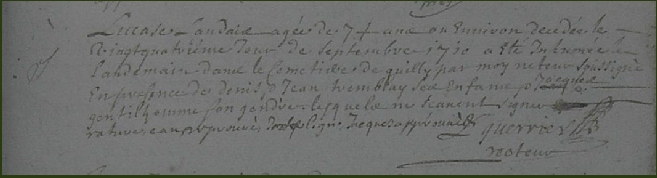 Lucase Landais agée de 74 ans ou Environ decedée le
vingtquatrième Jour de Septembre 1710 a Eté Inhumée le
Landemain dans le Cemetiere de quilly par moy recteur soussigné
En presence de denis, Jean tremblay ses Enfans, Jacques
gentilhomme son gendre lesquels ne scavent signer
ratures ligne Jacques approuvé
guerrier
recteur